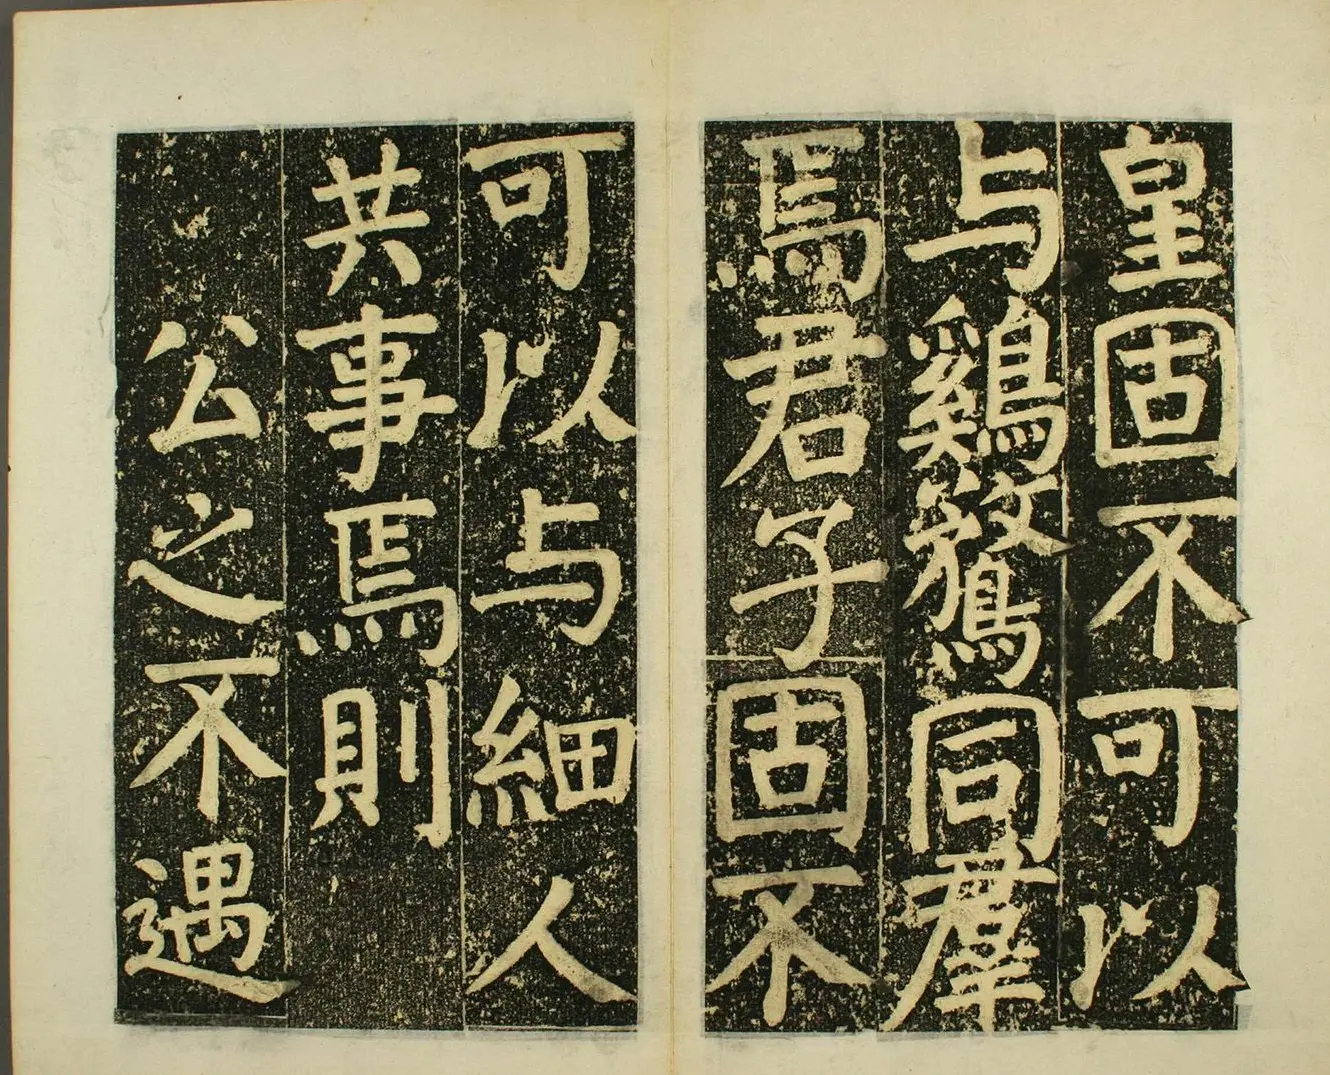 皇固不可以
与鷄鶩同羣
焉君子固不
可以与細人
共事焉則
公之不遇